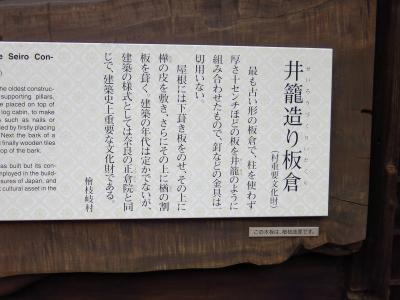 井籠造り板倉
せいろうづくりいたくら
(村重要文化財)
最も古い形の板倉で、柱を使わず
厚さ十センチほどの板を井籠のように
組み合わせたもので、釘などの金具は一
切用いない。
屋根には下葺き板をのせ、その上に
樺の皮を敷き、さらにその上に楢の割
板を葺く。建築の年代は定かでないが、
建築の様式としては奈良の正倉院と同
じで、建築史上重要な文化財である。
檜枝岐村
e Seiro Con-
he oldest construc-
supporting pillars,
e placed on top of
log cabin, to make
s such as nails or
ed by firstly placing
Next the bark of a
finally wooden tiles
op of the bark.
as built but its con-
mployed in the build-
sures of Japan, and
cultural asset in the
この木板は、檜枝岐産です。